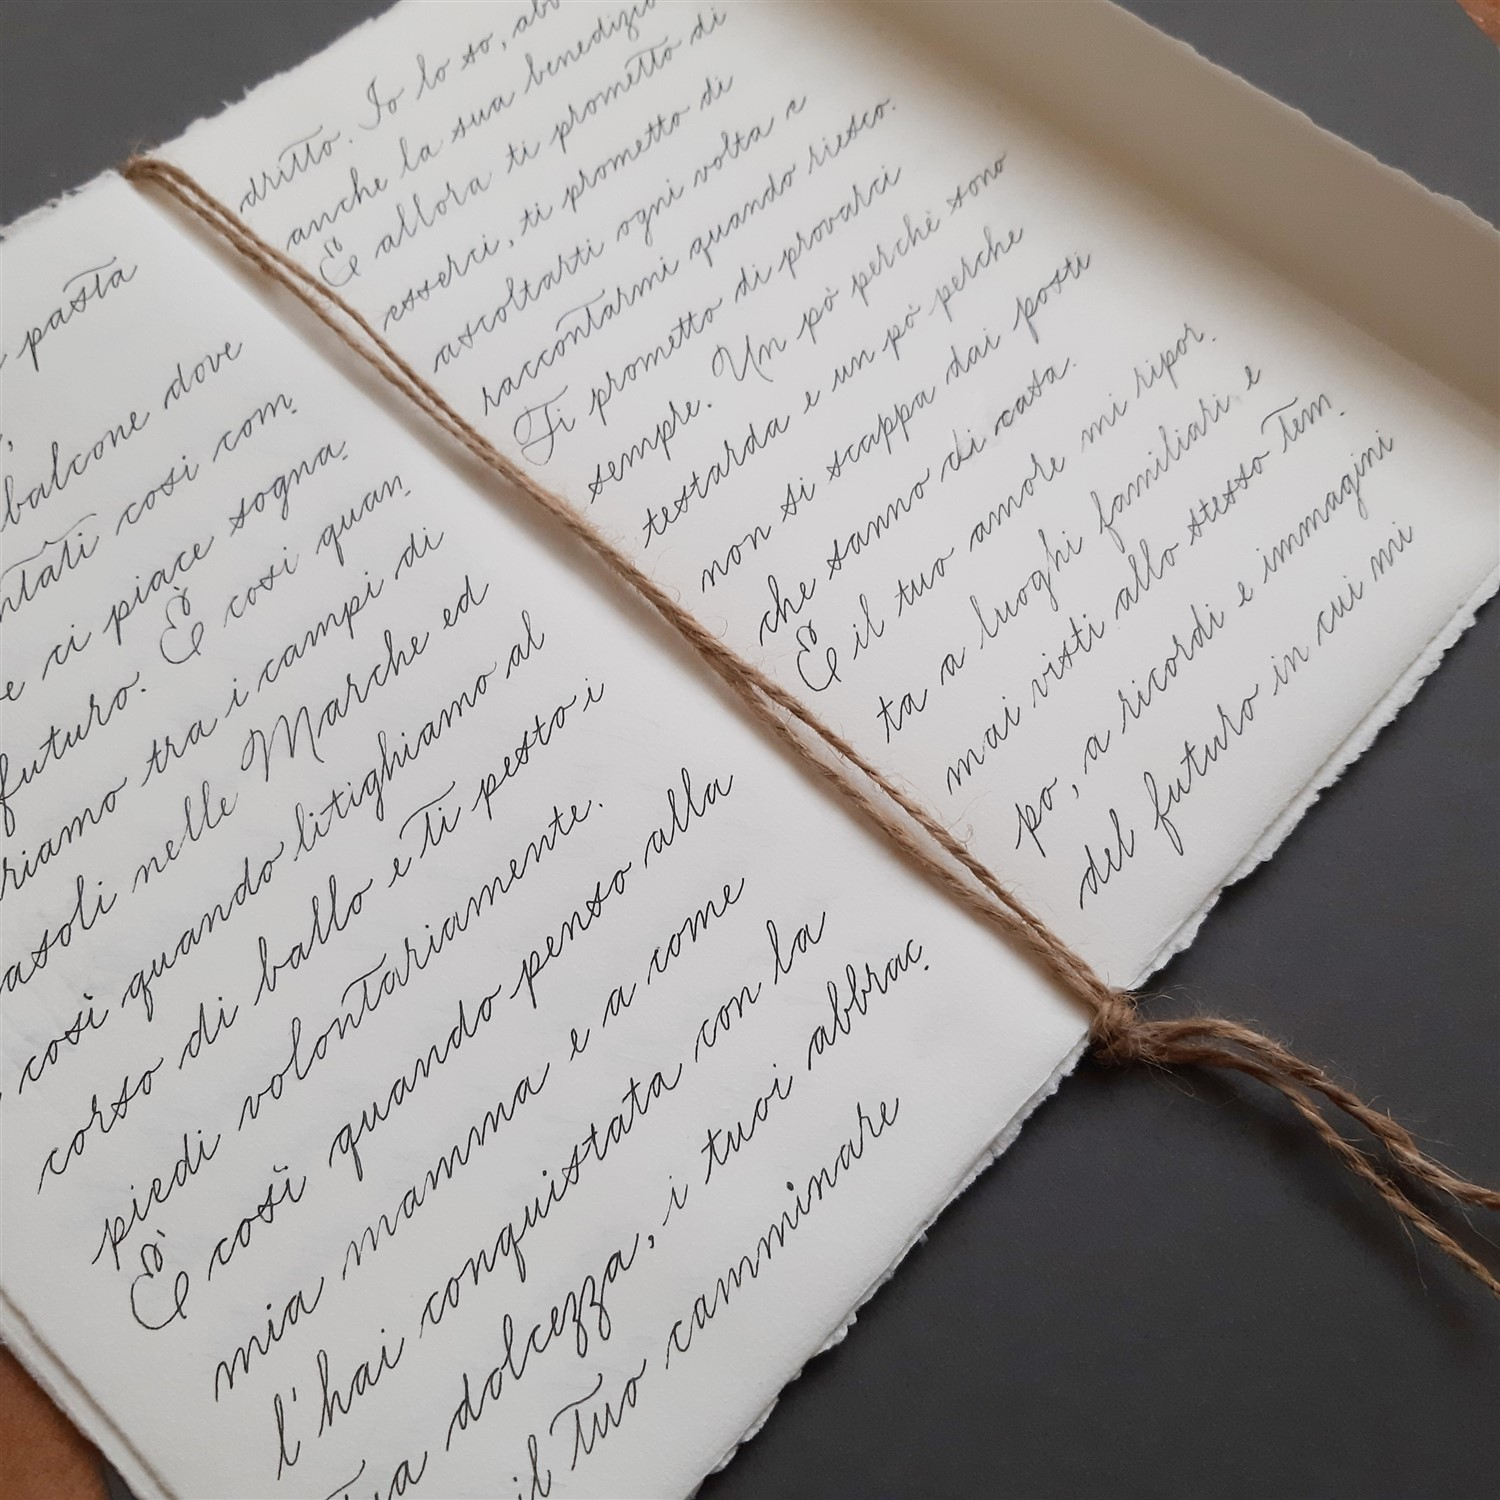 pasta
balcone dove
così com-
e ci piace sogna-
futuro. È così quan-
tra i campi di
nelle Marche ed
così quando litighiamo al
corso di ballo e ti pesto i
piedi volontariamente.
È così quando penso alla
mia mamma e a come
l'hai conquistata con la
tua dolcezza, i tuoi abbrac-
il tuo camminare
dritto. Io lo so,
anche la sua
E allora ti prometto di
esserci, ti prometto di
ascoltarti ogni volta e
raccontarmi quando riesco.
Ti prometto di provarci
sempre. Un pò perchè sono
testarda e un pò perche
non si scappa dai posti
che sanno di casa.
È il tuo amore mi ripor-
ta a luoghi familiari e
mai visti allo stesso tem-
po, a ricordi e immagini
del futuro in cui mi